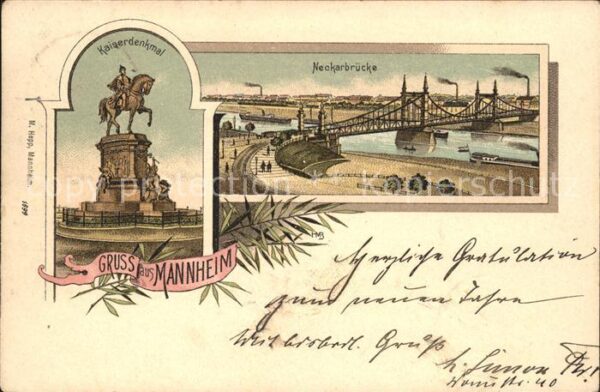 Kaiserdenkmal
Neckarbrücke
M. Hepp, Mannheim. 1899
copy protection ** Kopierschutz
HMB
GRUSS aus MANNHEIM
Herzliche Gratulation
zum neuen Jahre
Mit bestdl. Gruß
Simon
40